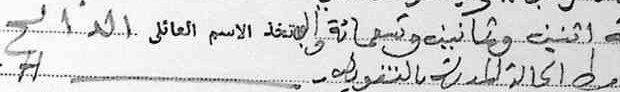 اثنين وثمانين وتسعمائة و يتخذ الاسم العائلي الذالح
ط الحالة المدنية بالتفويض